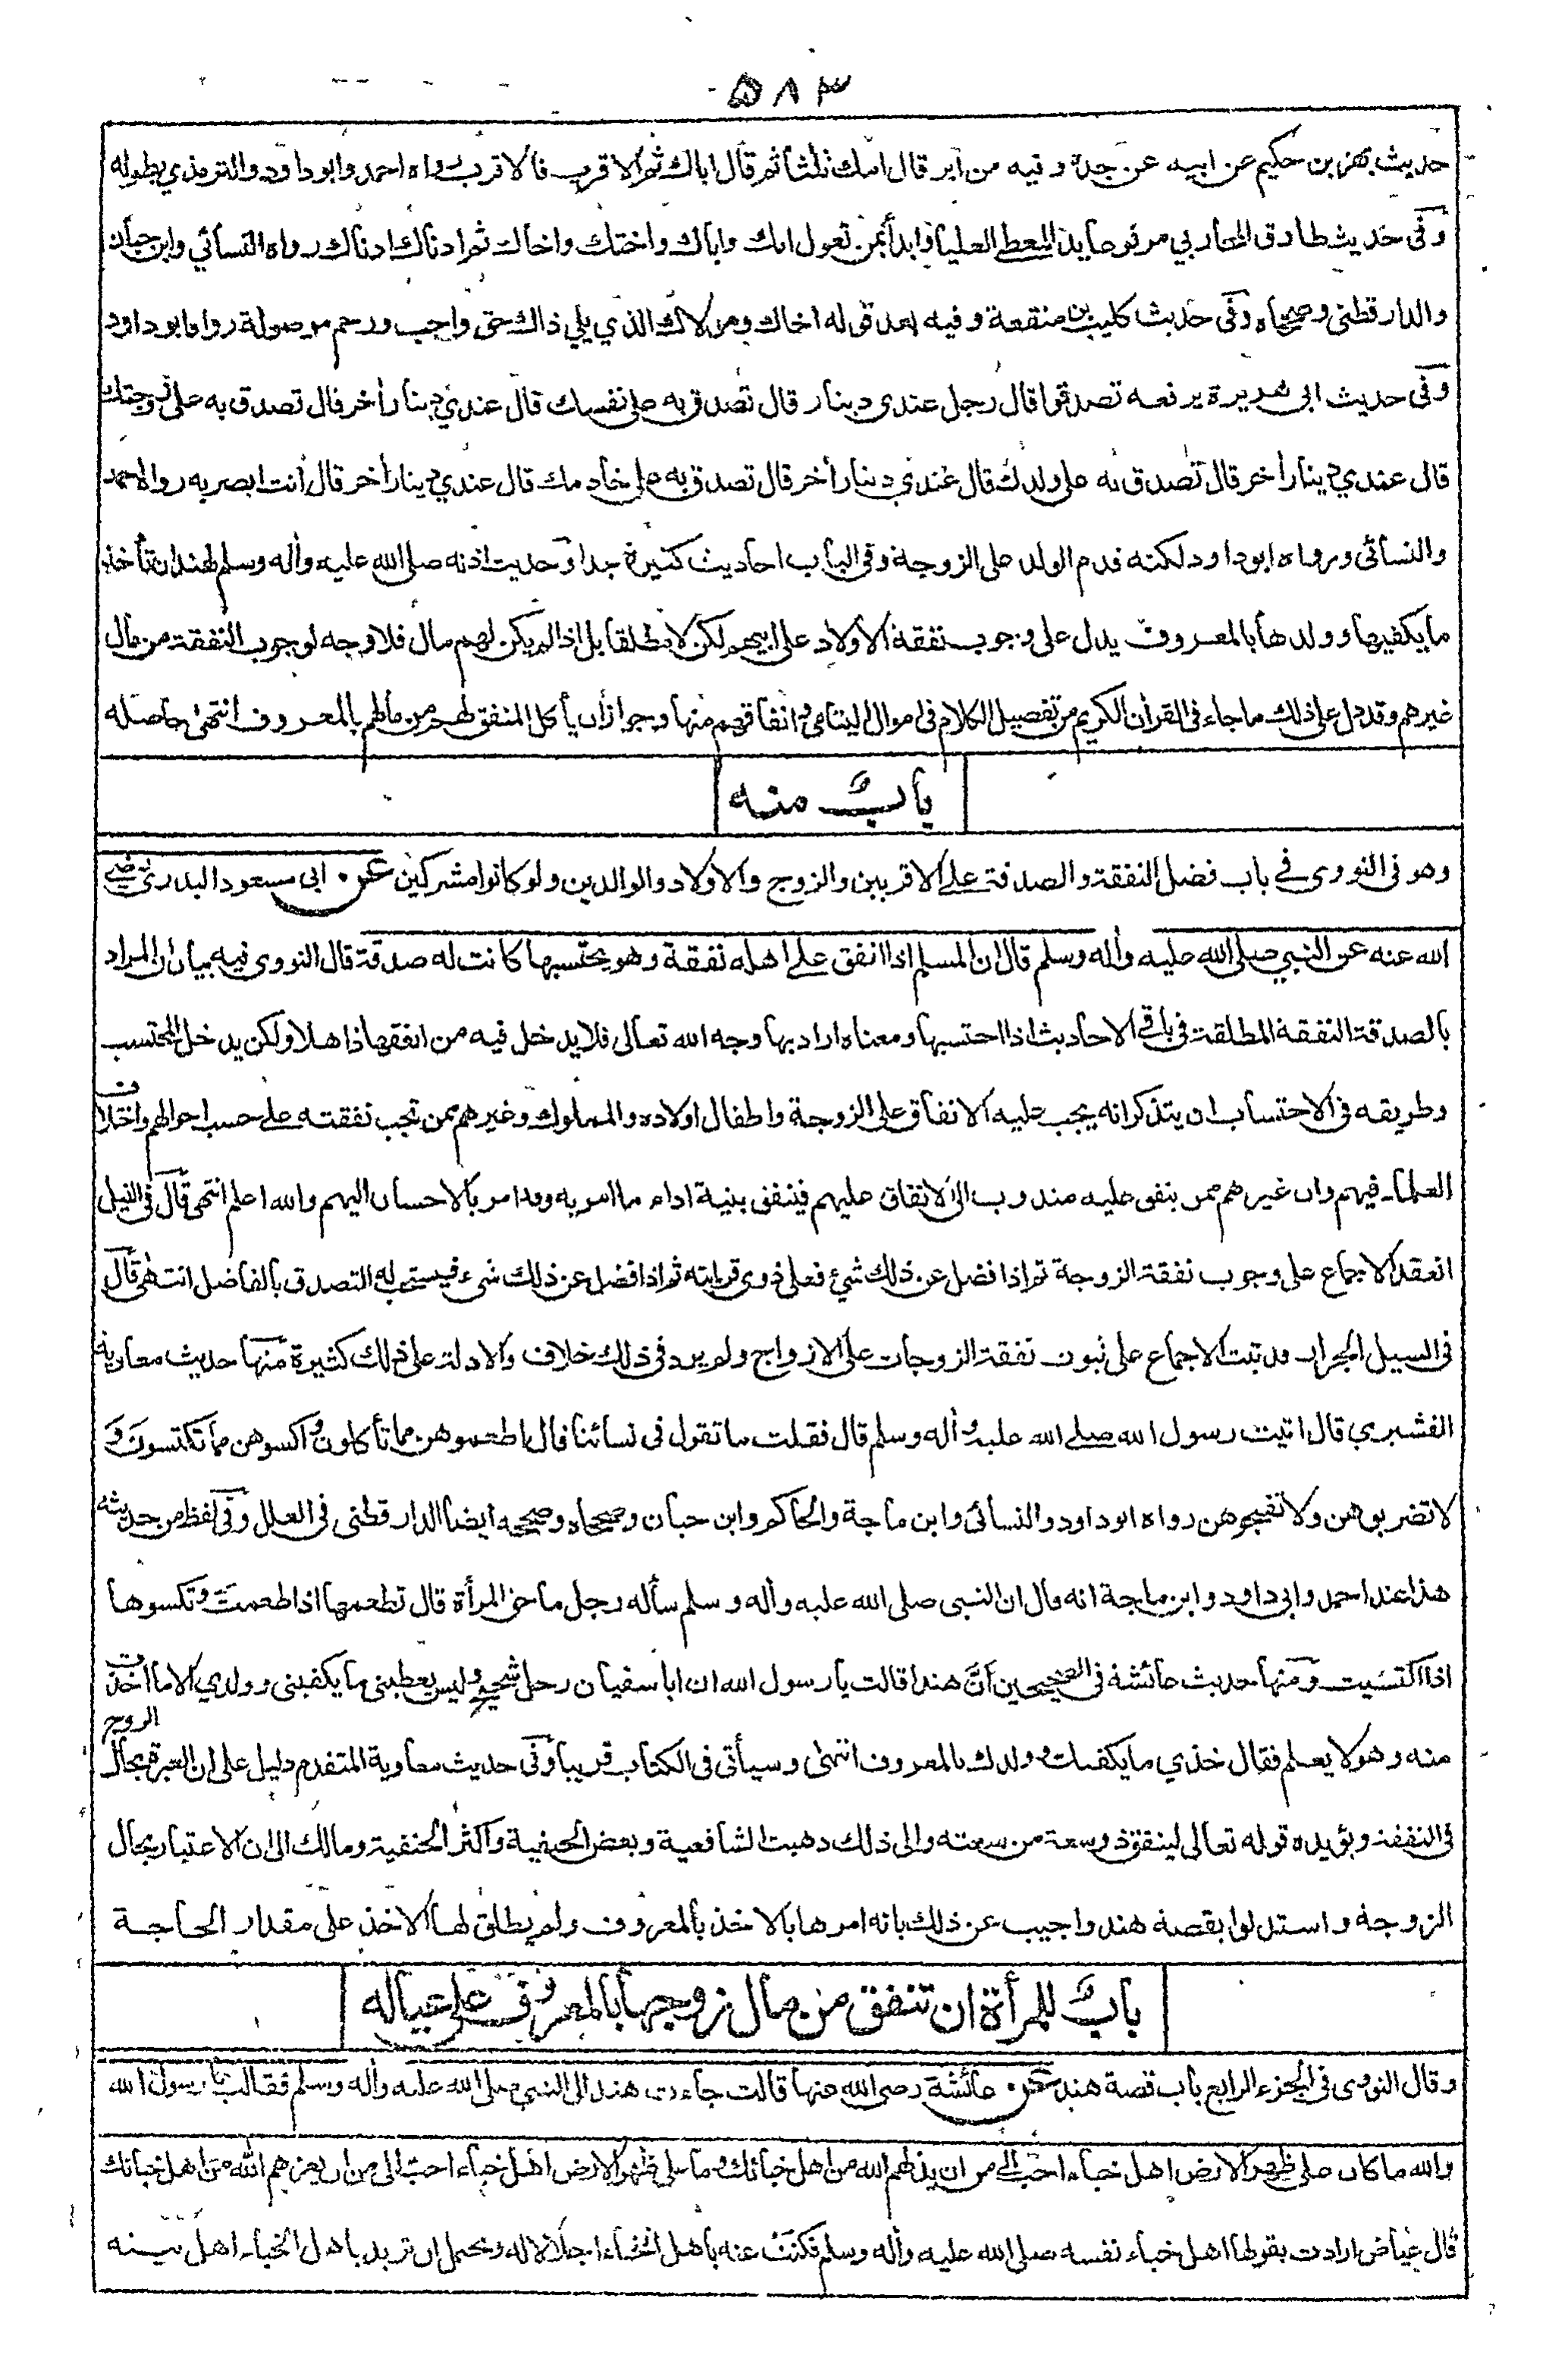 ٥٨٣
حديث بهز بن حكيم عن ابيه عن جده وفيه من ابر قال امك ثلثا ثم قال اباك ثم الاقرب فالاقرب رواه احمد وابوداود والترمذي بطوله
وفي حديث طارق المحاربي مرفوعا يد المعطي العليا وابدأ بمن تعول امك واباك واختك واخاك ثم ادناك ادناك رواه النسائي وابن حبان
والدارقطني وصححاه وفي حديث كليب بن منفعة وفيه بعد قوله اخاك ومولاك الذي يلي ذاك حق واجب ورحم موصولة رواه ابوداود
وفي حديث ابي هريرة يرفعه تصدقوا قال رجل عندي دينار قال تصدق به على نفسك قال عندي دينار أخر قال تصدق به على زوجتك
قال عندي دينار أخر قال تصدق به على ولدك قال عندي دينار أخر قال تصدق به على خادمك قال عندي دينار أخر قال أنت ابصر به رواه احمد
والنسائي ورواه ابوداود لكنه قدم الولد على الزوجة وفي الباب احاديث كثيرة جدا وحديث اذنه صلى الله عليه وأله وسلم لهند ان تأخذ
ما يكفيها وولدها بالمعروف يدل على وجوب نفقة الأولاد على ابيهم لكن لا مطلقا بل اذا لم يكن لهم مال فلا وجه لوجوب النفقة من مال
غيرهم وقد دل على ذلك ما جاء في القرأن الكريم من تفصيل الكلام في اموال اليتامى وانفاقهم منها وجواز ان يأكل المنفق لهم من مالهم بالمعروف انتهى حاصله
باب منه
وهو في النووي في باب فضل النفقة والصدقة على الاقربين والزوج والاولاد والوالدين ولو كانوا مشركين عن ابي مسعود البدري رضي
الله عنه عن النبي صلى الله عليه وأله وسلم قال ان المسلم اذا انفق على اهله نفقة وهو يحتسبها كانت له صدقة قال النووي فيه بيان ان المراد
بالصدقة النفقة المطلقة في باقي الاحاديث اذا احتسبها ومعناه اراد بها وجه الله تعالى فلا يدخل فيه من انفقها ذاهلا ولكن يدخل المحتسب
وطريقه في الاحتساب ان يتذكر انه يجب عليه الانفاق على الزوجة واطفال اولاده والمملوك وغيرهم ممن تجب نفقته على حسب احوالهم واختلاف
العلماء فيهم وان غيرهم ممن ينفق عليه مندوب الى الانفاق عليهم فينفق بنية اداء ما امر به وقد امر بالاحسان اليهم والله اعلم انتهى قال في النيل
انعقد الاجماع على وجوب نفقة الزوجة ثم اذا فضل عن ذلك شيئ فعلى ذوي قرابته ثم اذا فضل عن ذلك شيء فيستحب له التصدق بالفاضل انتهى قال
في السيل الجرار قد ثبت الاجماع على ثبوت نفقة الزوجات على الازواج ولم يرد في ذلك خلاف والادلة على ذلك كثيرة منها حديث معاوية
القشيري قال اتيت رسول الله صلى الله عليه وأله وسلم قال فقلت ما تقول في نسائنا قال اطعموهن مما تأكلون واكسوهن مما تكتسون و
لا تضربوهن ولا تقبحوهن رواه ابوداود والنسائي وابن ماجة والحاكم وابن حبان وصححاه وصححه ايضا الدارقطني في العلل وفي لفظ من حديثه
هذا عند احمد وابي داود وابن ماجة انه قال ان النبي صلى الله عليه وأله وسلم سأله رجل ما حق المرأة قال تطعمها اذا طعمت وتكسوها
اذا اكتسيت ومنها حديث عائشة في الصحيحين أن هندا قالت يا رسول الله ان ابا سفيان رجل شحيح وليس يعطيني ما يكفيني وولدي الا ما اخذت
منه وهو لا يعلم فقال خذي ما يكفيك وولدك بالمعروف انتهى وسيأتي في الكتاب قريبا وفي حديث معاوية المتقدم دليل على ان العبرة بحال الزوج
في النفقة ويؤيده قوله تعالى لينفق ذو سعة من سعته والى ذلك ذهبت الشافعية وبعض الحنفية واكثر الحنفية ومالك الى ان الاعتبار بحال
الزوجة واستدلوا بقصة هند واجيب عن ذلك بانه امرها بالاخذ بالمعروف ولم يطلق لها الاخذ على مقدار الحاجة
باب للمرأة ان تنفق من مال زوجها بالمعروف على عياله
وقال النووي في الجزء الرابع باب قصة هند عن عائشة رضي الله عنها قالت جاءت هند الى النبي صلى الله عليه وأله وسلم فقالت يا رسول الله
والله ما كان على ظهر الارض اهل خباء احب الي من ان يذلهم الله من اهل خبائك وما على ظهر الارض اهل خباء احب الي من ان يعزهم الله من اهل خبائك
قال عياض ارادت بقولها اهل خباء نفسه صلى الله عليه وأله وسلم فكنت عنه باهل الخباء اجلالا له ويحتمل ان تريد باهل الخباء اهل بيته